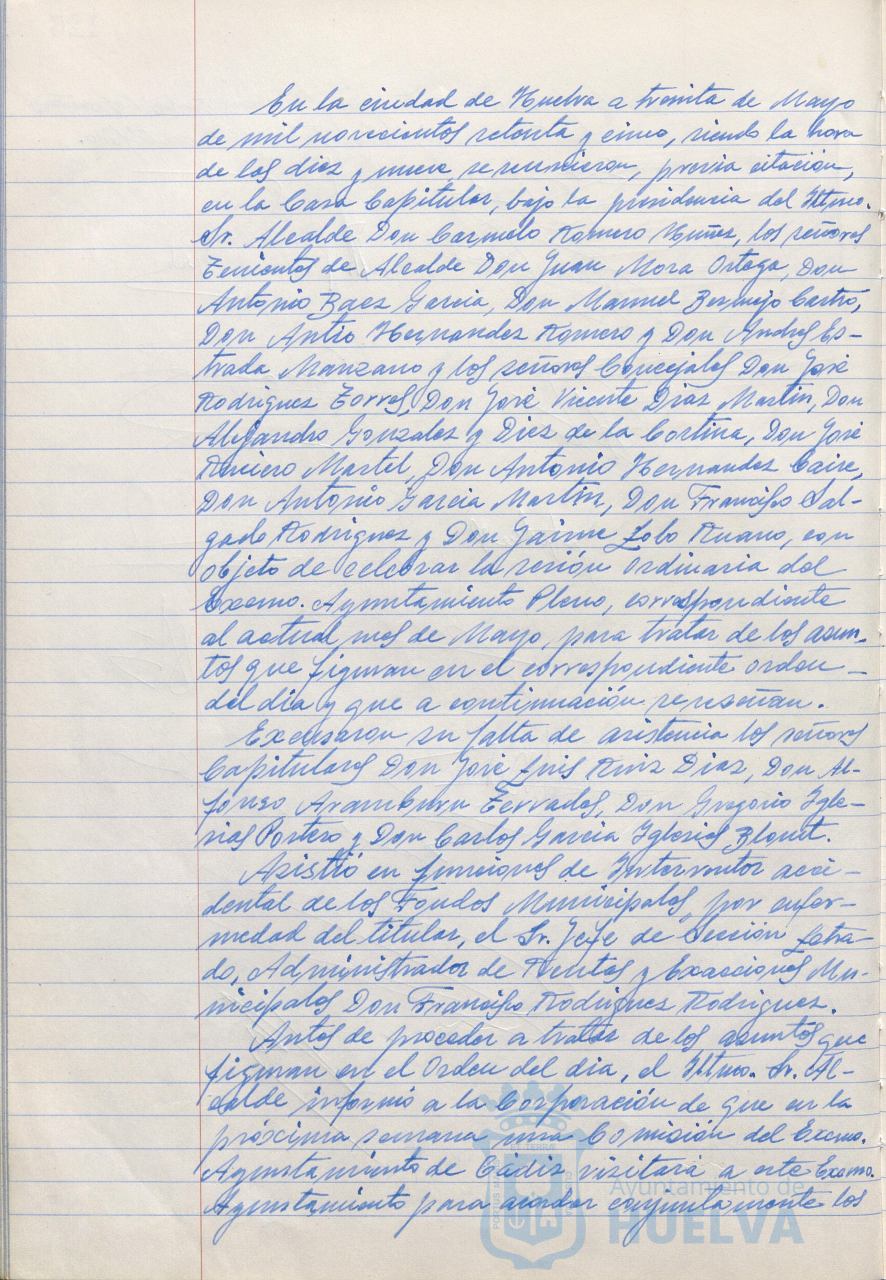 En la ciudad de Huelva a treinta de Mayo
de mil novecientos setenta y cinco, siendo la hora
de las diez y nueve se reunieron, previa citación,
en la Casa Capitular, bajo la presidencia del Iltmo.
Sr. Alcalde Don Carmelo Romero Nuñez, los señores
Tenientes de Alcalde Don Juan Mora Ortega, Don
Antonio Baez Garcia, Don Manuel Bermejo Castro,
Don Antio Hernandez Romero y Don Andres Es-
trada Manzano y los señores Concejales Don José
Rodriguez Torres, Don José Vicente Diaz Martin, Don
Alejandro Gonzalez y Diez de la Cortina, Don José
Martel, Don Antonio Hernandez
Don Antonio Garcia Martin, Don Francisco Sal-
gado Rodriguez y Don Jaime Lobo Ruano, con
objeto de celebrar la sesión ordinaria del
Excmo. Ayuntamiento Pleno, correspondiente
al actual mes de Mayo, para tratar de los asun-
tos que figuran en el correspondiente orden
del dia y que a continuación se reseñan.
Excusaron su falta de asistencia los señores
Capitulares Don José Luis Ruiz Diaz, Don Al-
fonso Aramburu Terrades, Don Gregorio Igle-
sias Portero y Don Carlos Garcia Iglesias
Asistió en funciones de Interventor acci-
dental de los Fondos Municipales, por enfer-
medad del titular, el Sr. Jefe de Sección Letra-
do, Administrador de Rentas y Exacciones Mu-
nicipales Don Francisco Rodriguez Rodriguez.
Antes de proceder a tratar de los asuntos que
figuran en el Orden del dia, el Iltmo. Sr. Al-
calde informó a la Corporación de que en la
próxima semana una Comisión del Excmo.
Ayuntamiento de Cádiz visitará a este Excmo.
Ayuntamiento para acordar conjuntamente los
Ayuntamiento de
HUELVA